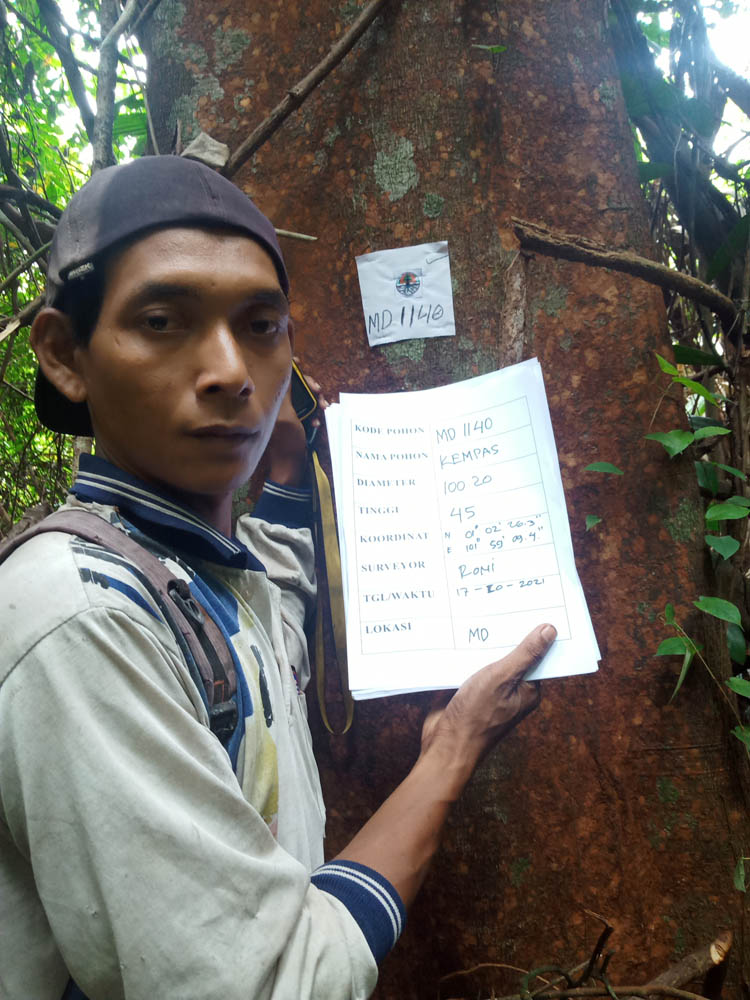 MD 1140
KODE POHON MD 1140
NAMA POHON KEMPAS
DIAMETER 100 20
TINGGI 45
KOORDINAT N 0° 02' 26.3"
E 101° 59' 09.4"
SURVEYOR RONI
TGL/WAKTU 17-10-2021
LOKASI MD